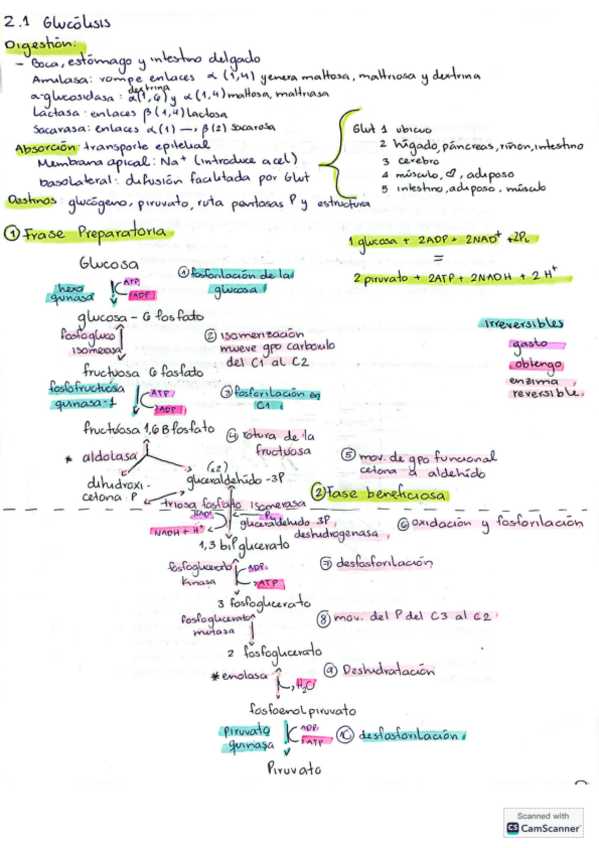 2.1 Glucólisis
Digestión:
- Boca, estómago y intestino delgado
Amilasa: rompe enlaces α (1,4) y genera maltosa, maltriosa y dextrina
α-glucosidasa: α(1,6) y α (1,4) maltosa, maltriasa
dextrina
Lactasa: enlaces β(1,4) lactosa
Sacarasa: enlaces α(1) → β(2) sacarosa
Absorción: transporte epitelial
Membrana apical: Na⁺ (introduce a cel)
basolateral: difusión facilitada por Glut
Glut 1 ubicuo
2 hígado, páncreas, riñon, intestino
3 cerebro
4 músculo, ♡, adiposo
5 intestino, adiposo, músculo
Destinos: glucógeno, piruvato, ruta pentosas P y estructura
① Frase Preparatoria
1 glucosa + 2ADP + 2NAD⁺ + 2Pi
=
2 piruvato + 2ATP + 2NADH + 2H⁺
Glucosa
hexo quinasa
ATP
ADP
① fosforilación de la glucosa
glucosa - 6 fosfato
fosfogluco isomerasa
② isomerización mueve gpo carbonilo del C1 al C2
Irreversibles
gasto
obtengo
enzima
reversible
fructuosa 6 fosfato
fosfofructosa quinasa-1
ATP
ADP
③ fosforilación en C1
fructuosa 1,6 Bfosfato
④ rotura de la fructuosa
* aldolasa
(x2)
dihidroxi-cetona P
gliceraldehido-3P
⑤ mov. de gpo funcional cetona a aldehído
triosa fosfato isomerasa
② Fase beneficiosa
NAD⁺
Pi
NADH + H⁺
gliceraldehido 3P deshidrogenasa
⑥ oxidación y fosforilación
1,3 biPglicerato
fosfoglicerato kinasa
ADP
ATP
⑦ desfosforilación
3 fosfoglicerato
fosfoglicerato mutasa
⑧ mov. del P del C3 al C2
2 fosfoglicerato
* enolasa
H₂O
⑨ Deshidratación
fosfoenol piruvato
piruvato quinasa
ADP
ATP
⑩ desfosforilación
Piruvato
Scanned with
CS CamScanner